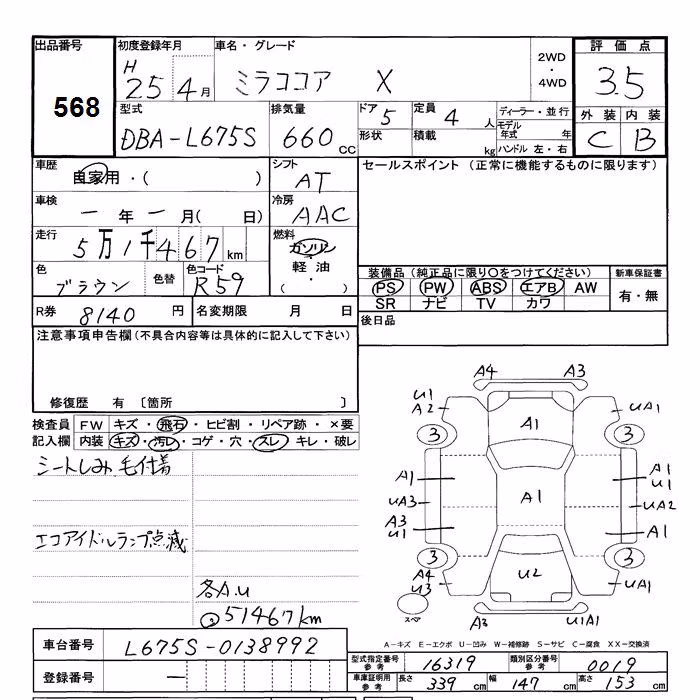 出品番号
568
初度登録年月
H
25 4月
車名・グレード
ミラココア X
2WD
・
4WD
評価点
3.5
外装 内装
C B
型式
DBA-L675S
排気量
660 cc
ドア 5
定員 4 人
形状
積載 kg
ディーラー・並行
モデル年式 年
ハンドル 左・右
車歴
自家用・( )
シフト
AT
セールスポイント (正常に機能するものに限ります)
車検
― 年 ― 月( 日)
冷房
AAC
走行
5万1千467 km
燃料
ガソリン
・
軽油
・
( )
色
ブラウン
色替
色コード
R59
装備品 (純正品に限り○をつけてください)
PS PW ABS エアB AW
SR ナビ TV カワ
新車保証書
有・無
R券 8140 円
名変期限 月 日
後日品
注意事項申告欄(不具合内容等は具体的に記入して下さい)
修復歴 有 〔箇所 〕
検査員
記入欄
FW キズ・飛石・ヒビ割・リペア跡・×要
内装 キズ・汚レ・コゲ・穴・スレ・キレ・破レ
シートしみ、毛付着
エコアイドルランプ点滅
各A.U
51467km
A4 A3
U1
A2
UA1
3 A1 3
A1
A1
U1
UA3
A1
UA2
A3
U1
A1
3 3
A4
U3
U2
UA1
スペア
A3 U1A1
A-キズ E-エクボ U-凹み W-補修跡 S-サビ C-腐食 XX-交換済
車台番号 L675S-0138992
登録番号 ―
型式指定番号
参考
16319
類別区分番号
参考
0019
車庫証明用
参考
長さ 339 cm
幅 147 cm
高さ 153 cm